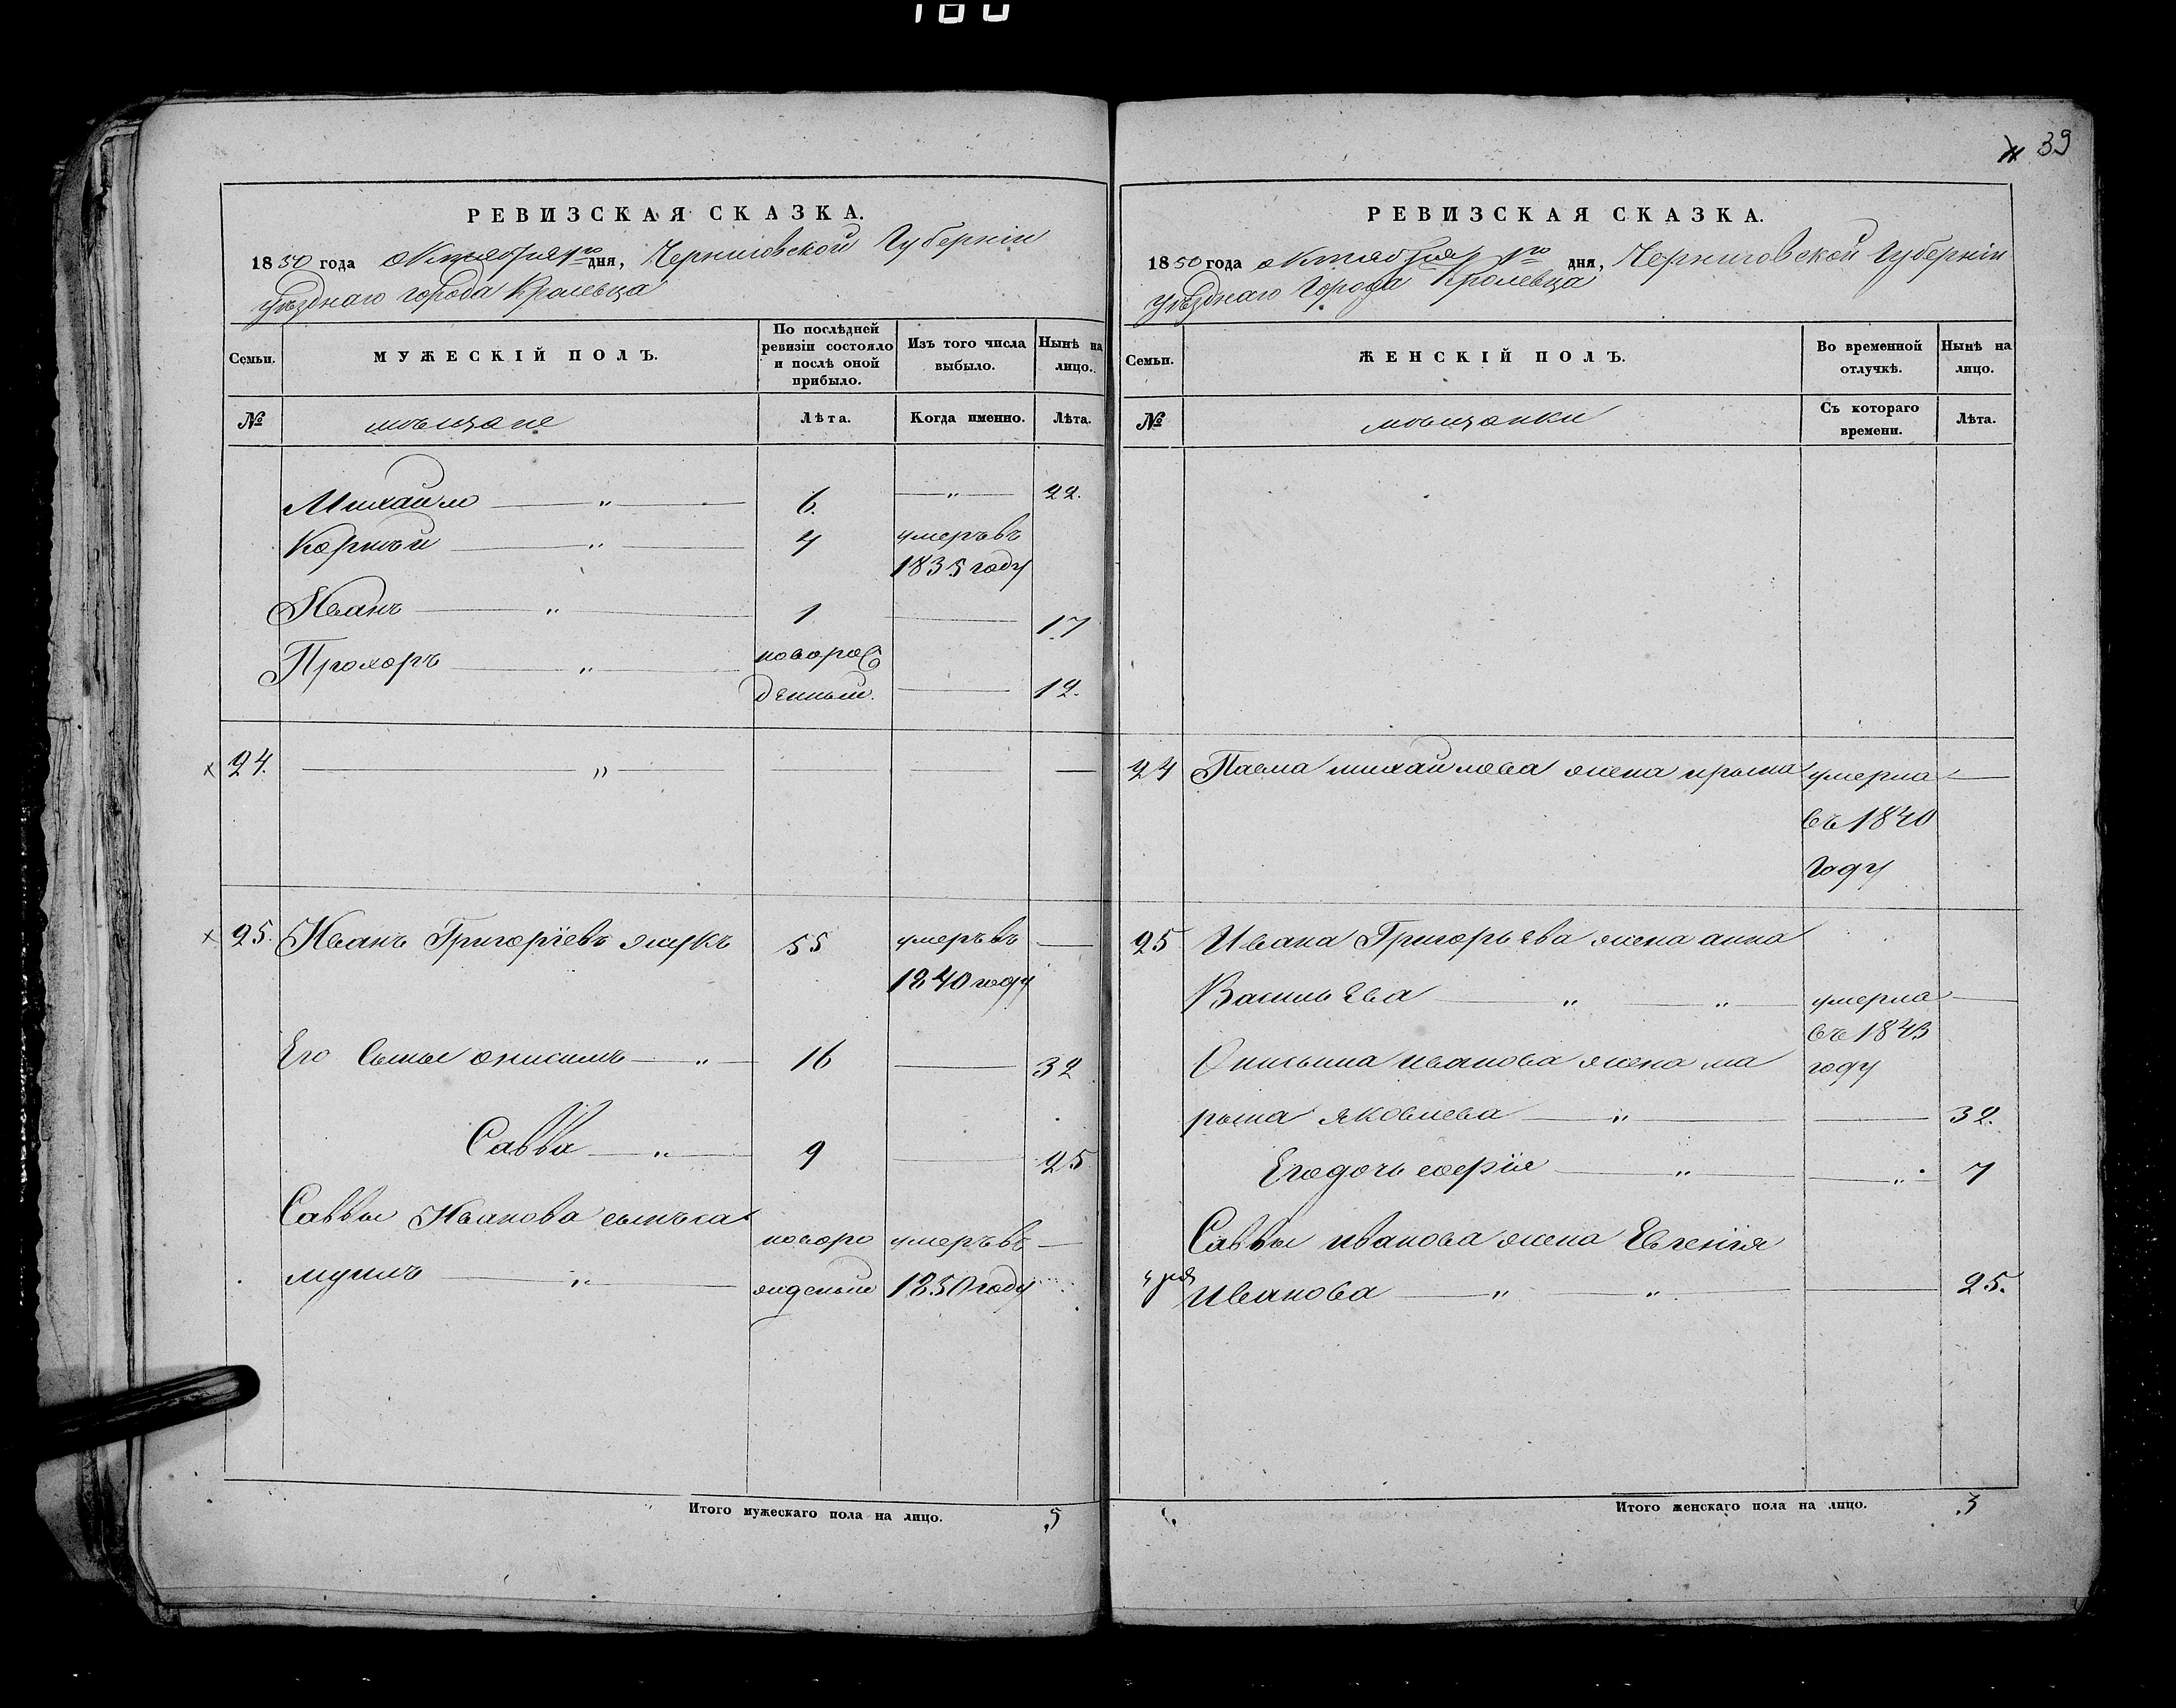 39
РЕВИЗСКАЯ СКАЗКА.
1850 года октября 1го дня, Черниговской Губерніи
уѣзднаго города Кролевца
Семьи. МУЖЕСКІЙ ПОЛЪ. По послѣдней ревизіи состояло и послѣ оной прибыло. Изъ того числа выбыло. Нынѣ на лицо.
№ мѣщане Лѣта. Когда именно. Лѣта.
Михаилъ — „ — 6. — „ — 22.
Корнѣй — „ — 4 умеръ въ
1835 году
Иванъ — „ — 1 — 17
Прохоръ — „ — новорож
денный. — 12.
24. — „ — — — —
25. Иванъ Григорїевъ жукъ 55 умеръ въ —
1840 году
Его сыны онисимъ — „ — 16 — 32
Савва — „ — 9 — 25
Саввы Иванова сынъ са
муилъ — „ — новоро умеръ въ —
жденный 1850 году
Итого мужескаго пола на лицо. 5
РЕВИЗСКАЯ СКАЗКА.
1850 года октября 1го дня, Черниговской Губерніи
уѣзднаго Города Кролевца
Семьи. ЖЕНСКІЙ ПОЛЪ. Во временной отлучкѣ. Нынѣ на лицо.
№ мѣщанки Съ котораго времени. Лѣта.
24 Павла михайлова жена ирына умерла —
въ 1840
Году
25 Ивана Григорьева жена анна
Васильева — „ — „ — умерла —
въ 1843
Онисима иванова жена ма году
рына яковлева — „ — — 32.
Его дочь софїя — „ — — „ — 7
Саввы иванова жена Евгенїя
Иванова — „ — „ — — 25.
Итого женскаго пола на лицо. 3